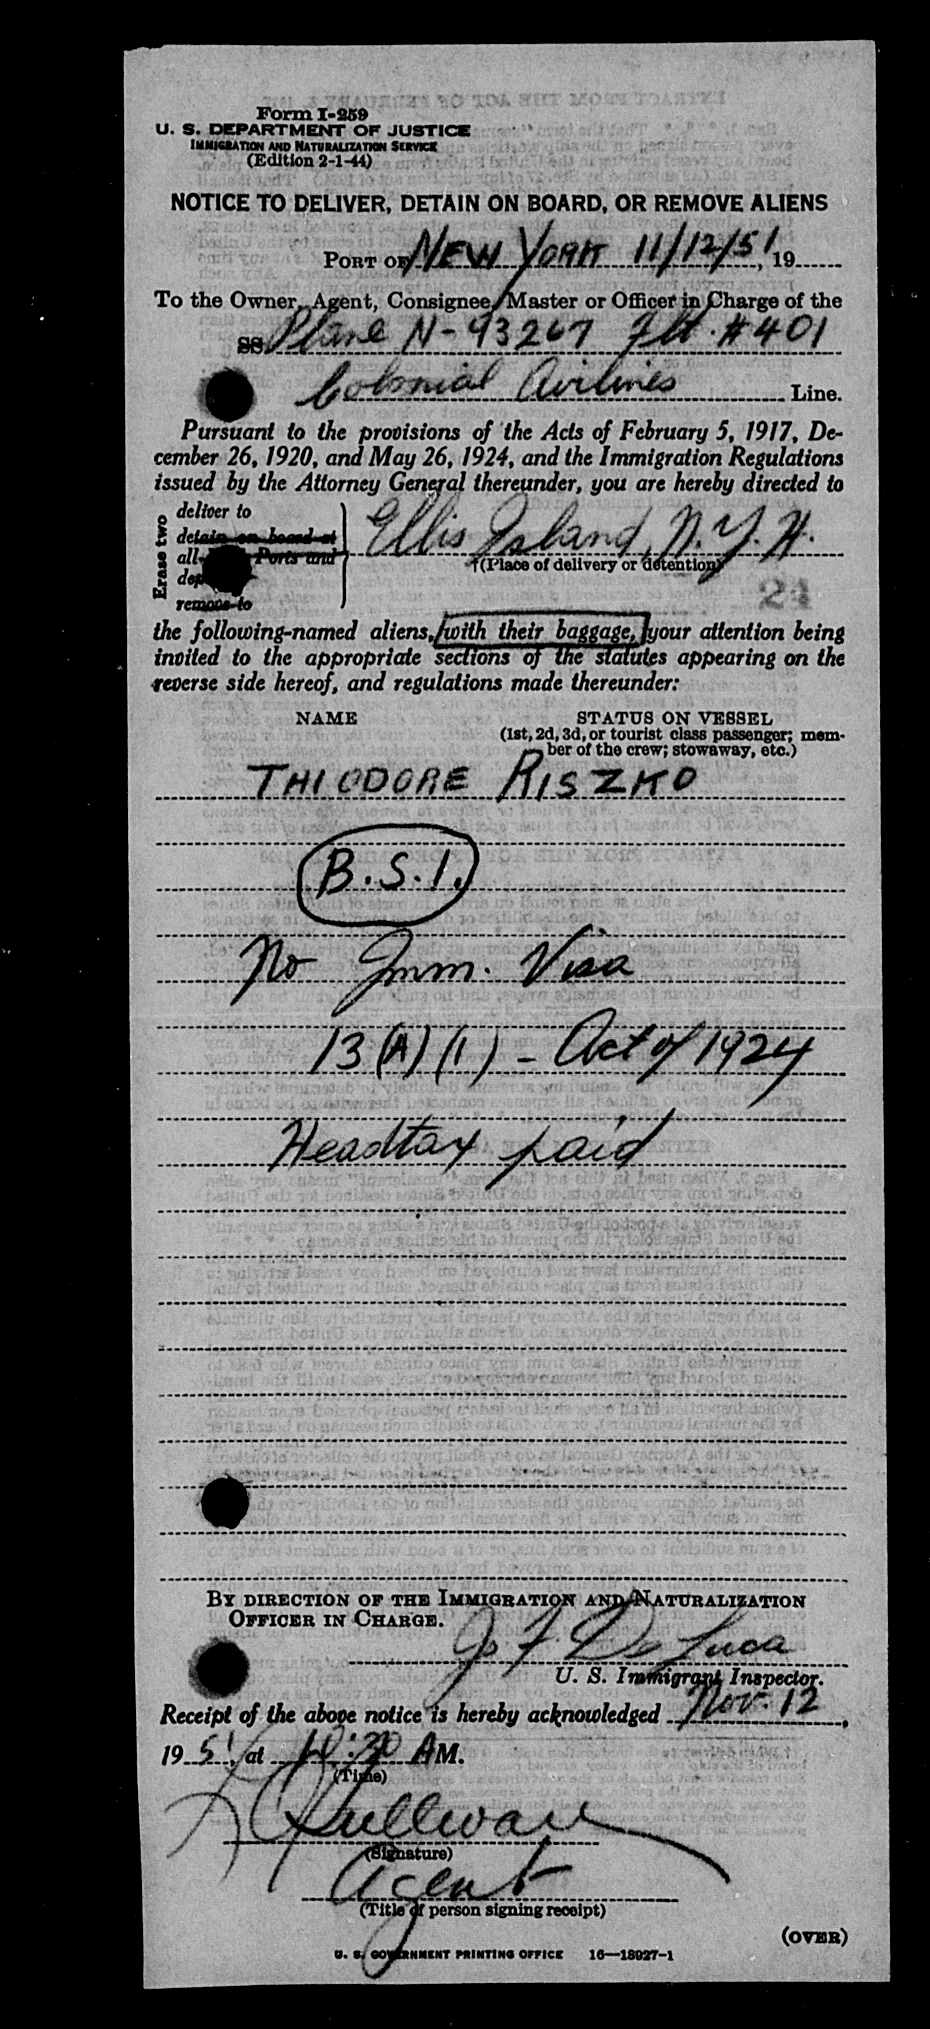 Form I-259
U. S. DEPARTMENT OF JUSTICE
IMMIGRATION AND NATURALIZATION SERVICE
(Edition 2-1-44)
NOTICE TO DELIVER, DETAIN ON BOARD, OR REMOVE ALIENS
PORT OF NEW YORK 11/12/51, 19
To the Owner, Agent, Consignee, Master or Officer in Charge of the
SS Plane N-93267 Flt. #401
Colonial Airlines Line.
Pursuant to the provisions of the Acts of February 5, 1917, De-
cember 26, 1920, and May 26, 1924, and the Immigration Regulations
issued by the Attorney General thereunder, you are hereby directed to
Erase two
deliver to
detain on board at
all Ports and
remove to
Ellis Island, N.Y.H.
(Place of delivery or detention)
24
the following-named aliens, with their baggage, your attention being
invited to the appropriate sections of the statutes appearing on the
reverse side hereof, and regulations made thereunder:
NAME STATUS ON VESSEL
(1st, 2d, 3d, or tourist class passenger; mem-
ber of the crew; stowaway, etc.)
THIODORE RISZKO
B.S.I.
No Imm. Visa
13 (A) (1) - Act of 1924
Headtax paid
BY DIRECTION OF THE IMMIGRATION AND NATURALIZATION
OFFICER IN CHARGE.
Jo F. De Luca
U. S. Immigrant Inspector.
Receipt of the above notice is hereby acknowledged Nov. 12,
1951, at 10:30 AM.
(Time)
Sullivan
(Signature)
Agent
(Title of person signing receipt)
(OVER)
U. S. GOVERNMENT PRINTING OFFICE 16—18927-1